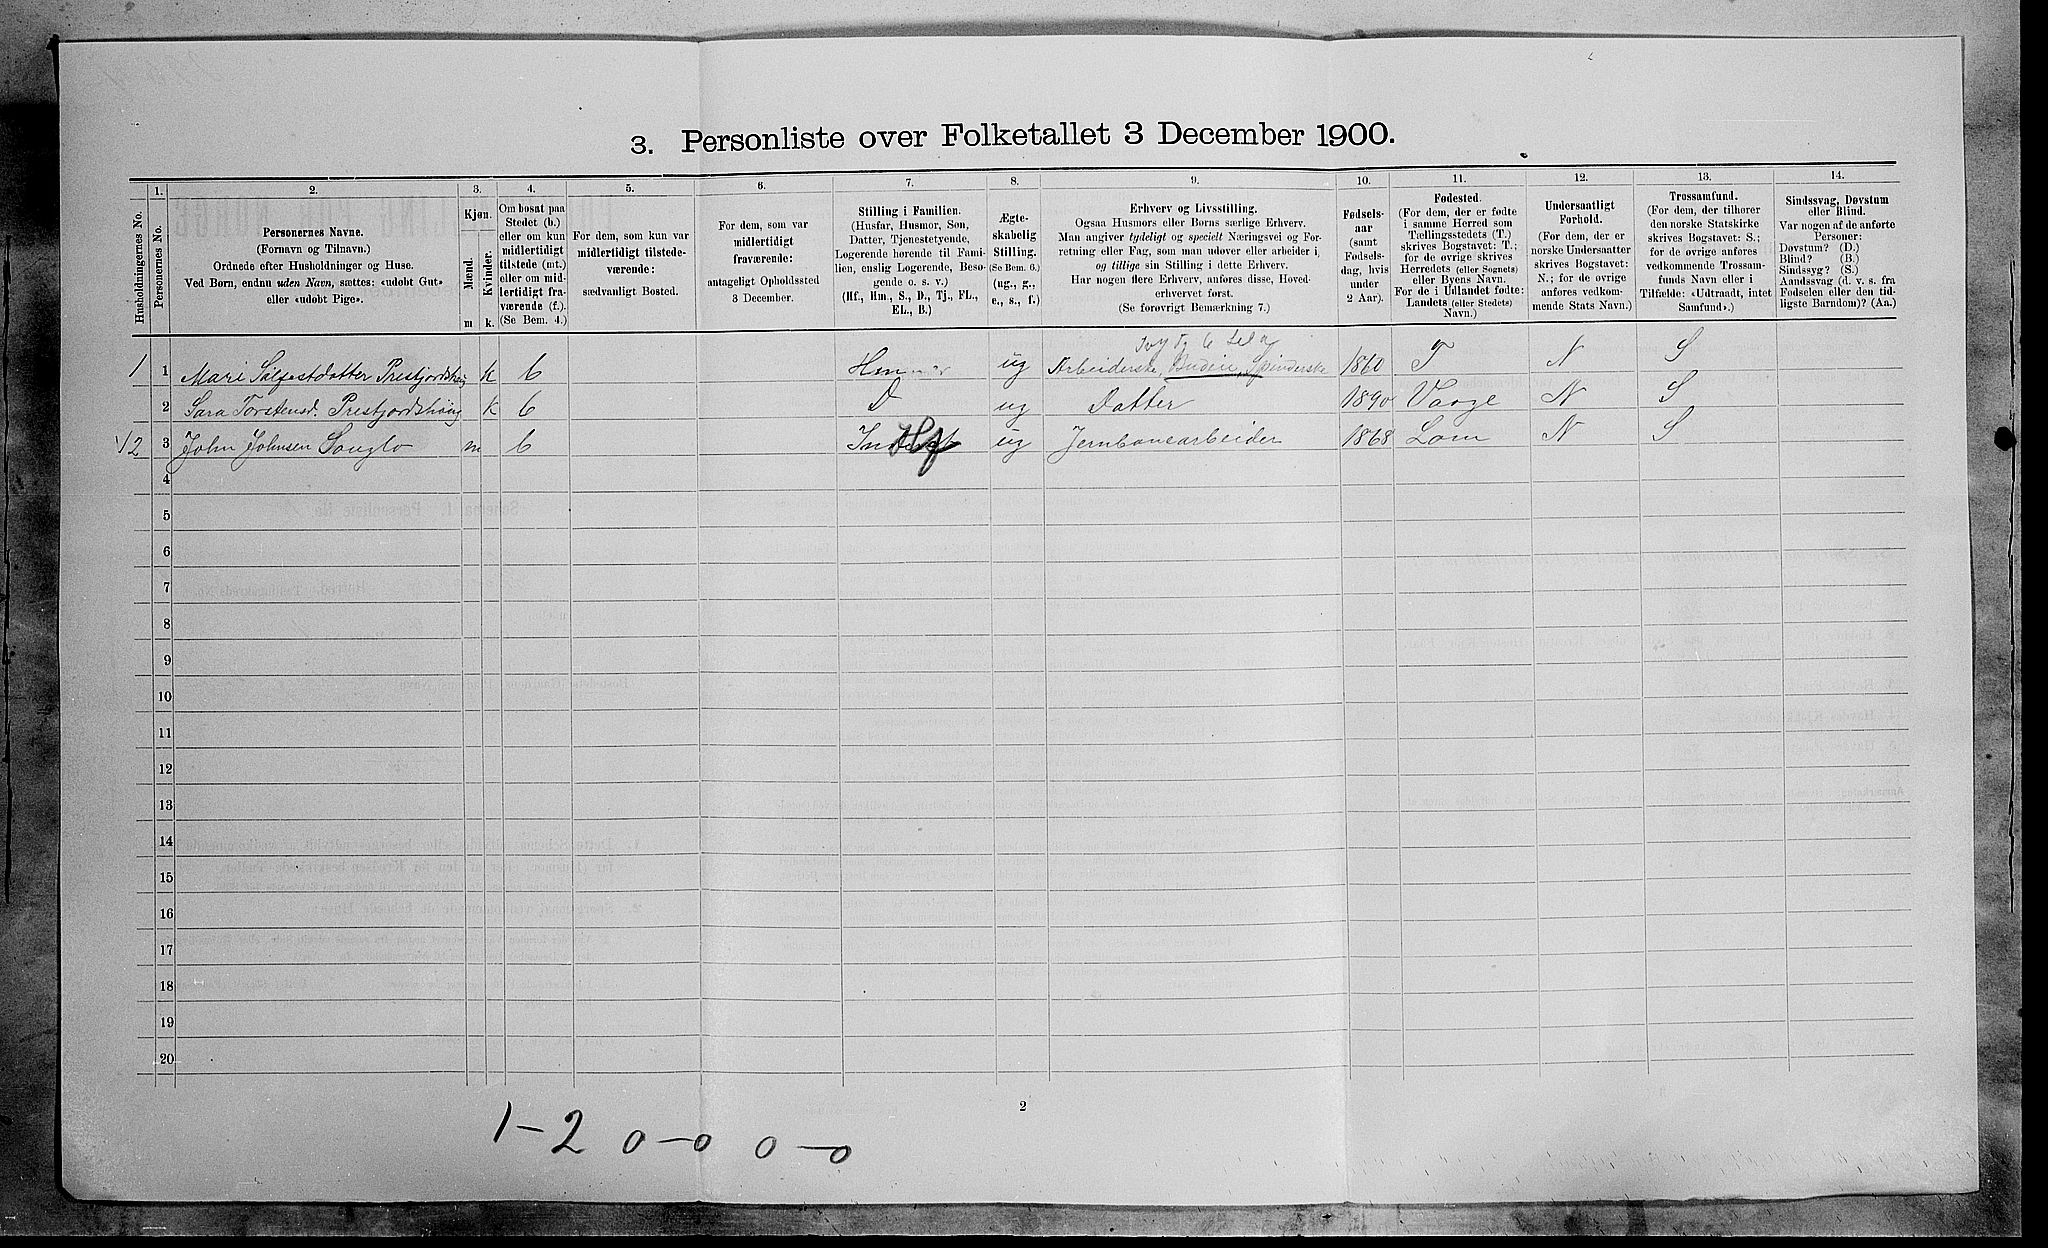 3. Personliste over Folketallet 3 December 1900.
Husholdningernes No.
1. Personernes No.
2. Personernes Navne.
(Fornavn og Tilnavn.)
Ordnede efter Husholdninger og Huse.
Ved Børn, endnu uden Navn, sættes: «udobt Gut»
eller «udobt Pige».
3. Kjøn.
Mænd. m
Kvinder. k.
4. Om bosat paa
Stedet (b.)
eller om kun
midlertidigt
tilstede (mt.)
eller om mid-
lertidigt fra-
værende (f.).
(Se Bem. 4.)
5. For dem, som kun var
midlertidigt tilstede-
værende:
sædvanligt Bosted.
6. For dem, som var
midlertidigt
fraværende:
antageligt Opholdssted
3 December.
7. Stilling i Familien.
(Husfar, Husmor, Søn,
Datter, Tjenestetyende,
Logerende hørende til Fami-
lien, enslig Logerende, Besø-
gende o. s. v.)
(Hf., Hm., S., D., Tj., FL.,
EL., B.)
8. Ægte-
skabelig
Stilling.
(Se Bem. 6.)
(ug., g.,
e., s., f.)
9. Erhverv og Livsstilling.
Ogsaa Husmors eller Børns særlige Erhverv.
Man angiver tydeligt og specielt Næringsvei og For-
retning eller Fag, som man udover eller arbeider i,
og tillige sin Stilling i dette Erhverv.
Har nogen flere Erhverv, anføres disse, Hoved-
erhvervet først.
(Se forøvrigt Bemærkning 7.)
10. Fødsels-
aar
(samt
Fødsels-
dag, hvis
under
2 Aar).
11. Fødested.
(For dem, der er fødte
i samme Herred som
Tællingsstedets (T.)
skrives Bogstavet: T.;
for de øvrige skrives
Herredets (eller Sognets)
eller Byens Navn.
For de i Udlandet fødte:
Landets (eller Stedets)
Navn.)
12. Undersaatligt
Forhold.
(For dem, der er
norske Undersaatter
skrives Bogstavet:
N.; for de øvrige
anføres vedkom-
mende Stats Navn.)
13. Trossamfund.
(For dem, der tilhører
den norske Statskirke
skrives Bogstavet: S.;
for de øvrige anføres
vedkommende Trossam-
funds Navn eller i
Tilfælde: «Udtraadt, intet
Samfund».)
14. Sindssvag, Døvstum
eller Blind.
Var nogen af de anførte
Personer:
Døvstum? (D.)
Blind? (B.)
Sindssyg? (S.)
Aandssvag (d. v. s. fra
Fødselen eller den tid-
ligste Barndom)? (Aa.)
1 1 Mari Sølfestdatter Prestjordshøug k b Hm ug Arbeiderske, Budeie, Spinderske 1860 T N S
2 Sara Torstensd. Prestjordshöug k b D ug Datter 1890 Vaage N S
2 3 John Johnsen Souglo m b Hf ug Jernbanearbeider 1868 Lom N S
4
5
6
7
8
9
10
11
12
13
14
15
16
17
18
19
20
2
1–2 0–0 0–0